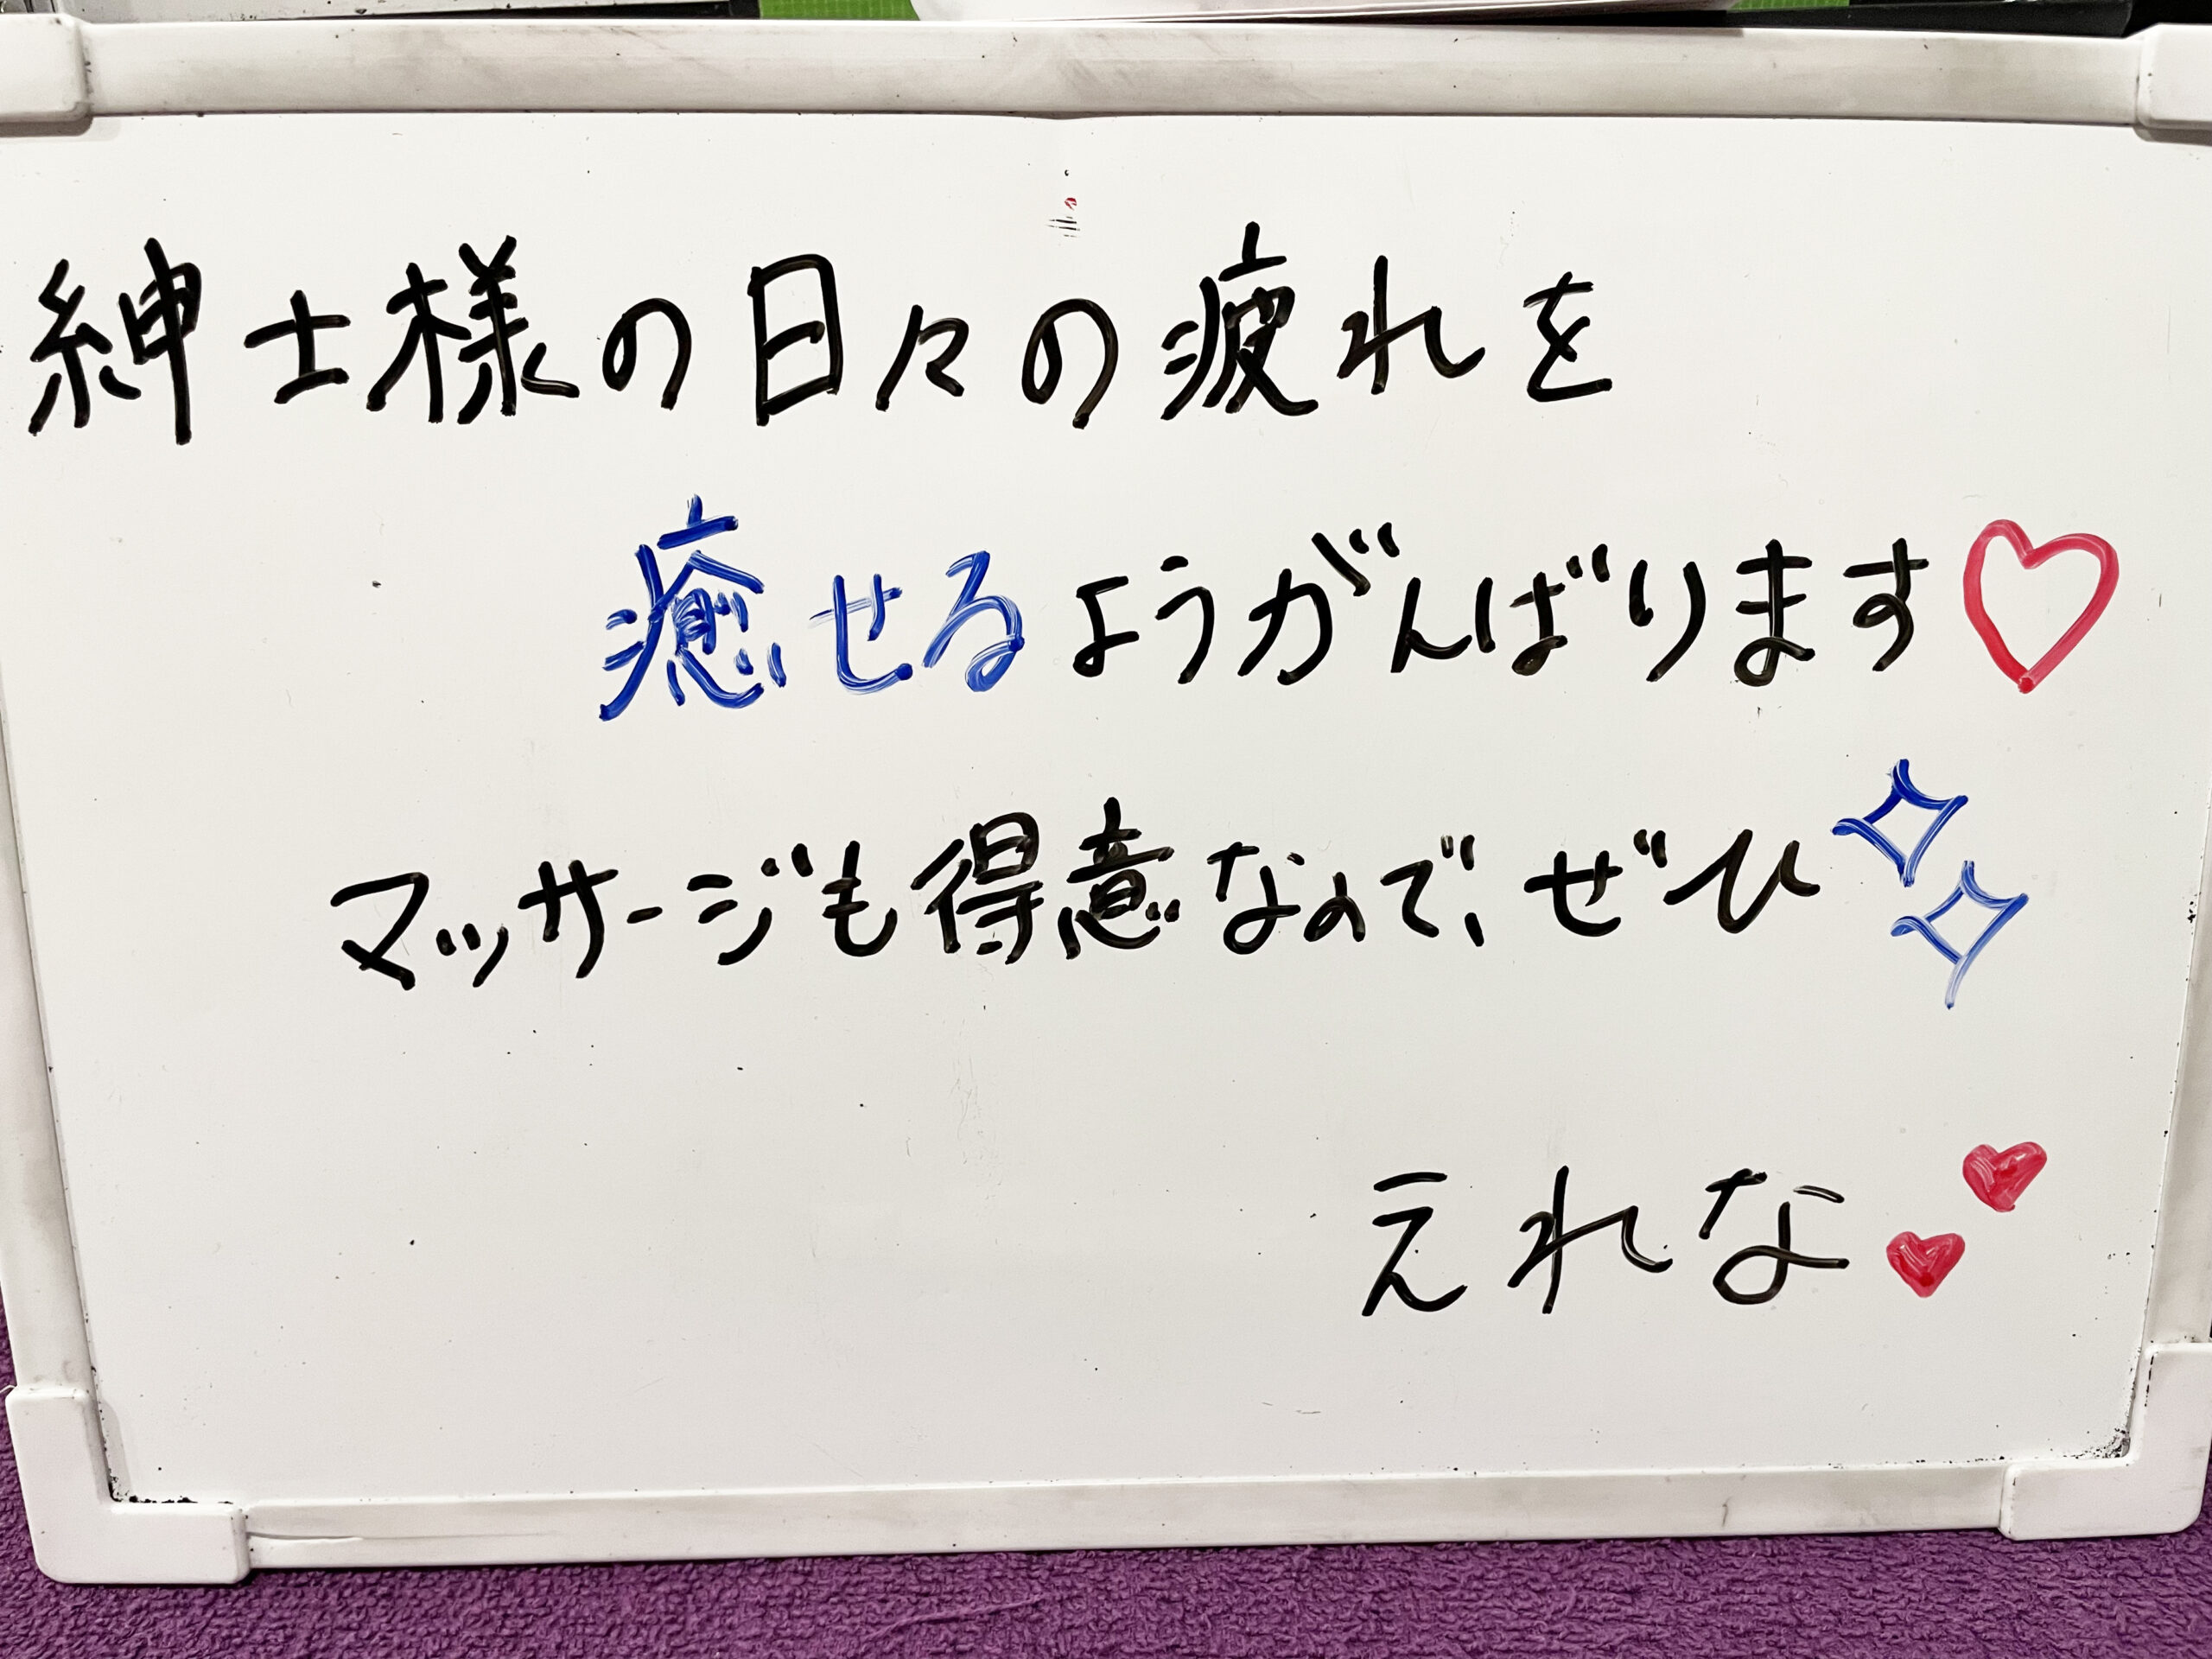 紳士様の日々の疲れを
癒せるようがんばります♡
マッサージも得意なので、ぜひ
えれな